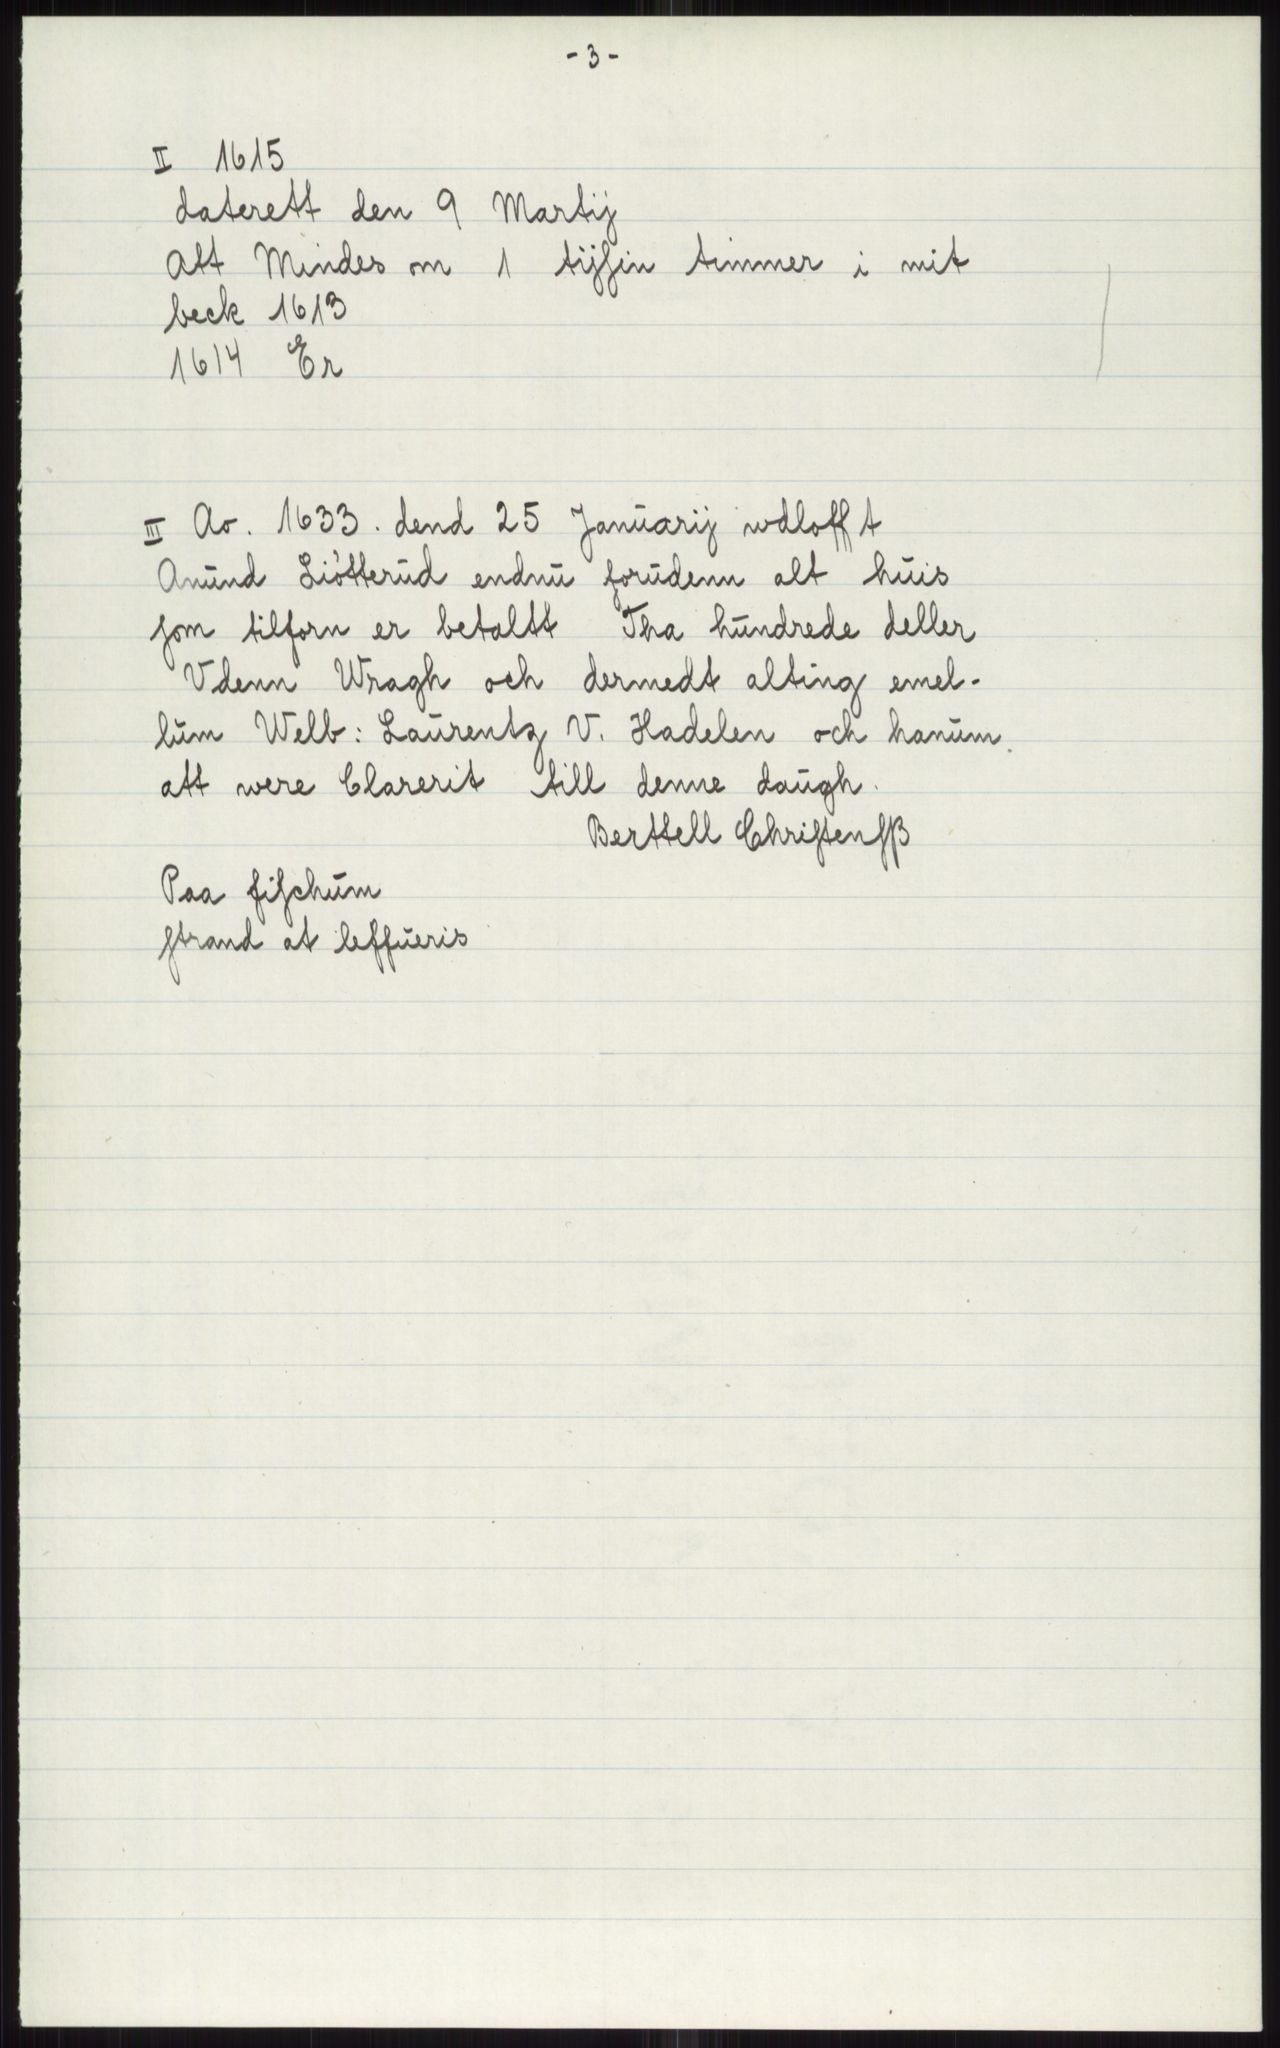 - 3 -
II 1615
daterett den 9 Martij
Att Mindes om 1 tijſin timmer i mit
beck 1613
1614 Er
III Ao. 1633. dend 25 Januarij wdlofft
Anund Liötterud endnu forudenn alt huis
ſom tilforn er betaltt Tha hundrede deller
Vdenn Wragh och dermedt alting emel-
lum Welb: Laurentz V. Hadelen och hanum.
att were Clarerit till denne daugh.
Berttell Chriſtenſß
Paa fiſchum
ſtrand at leffueris